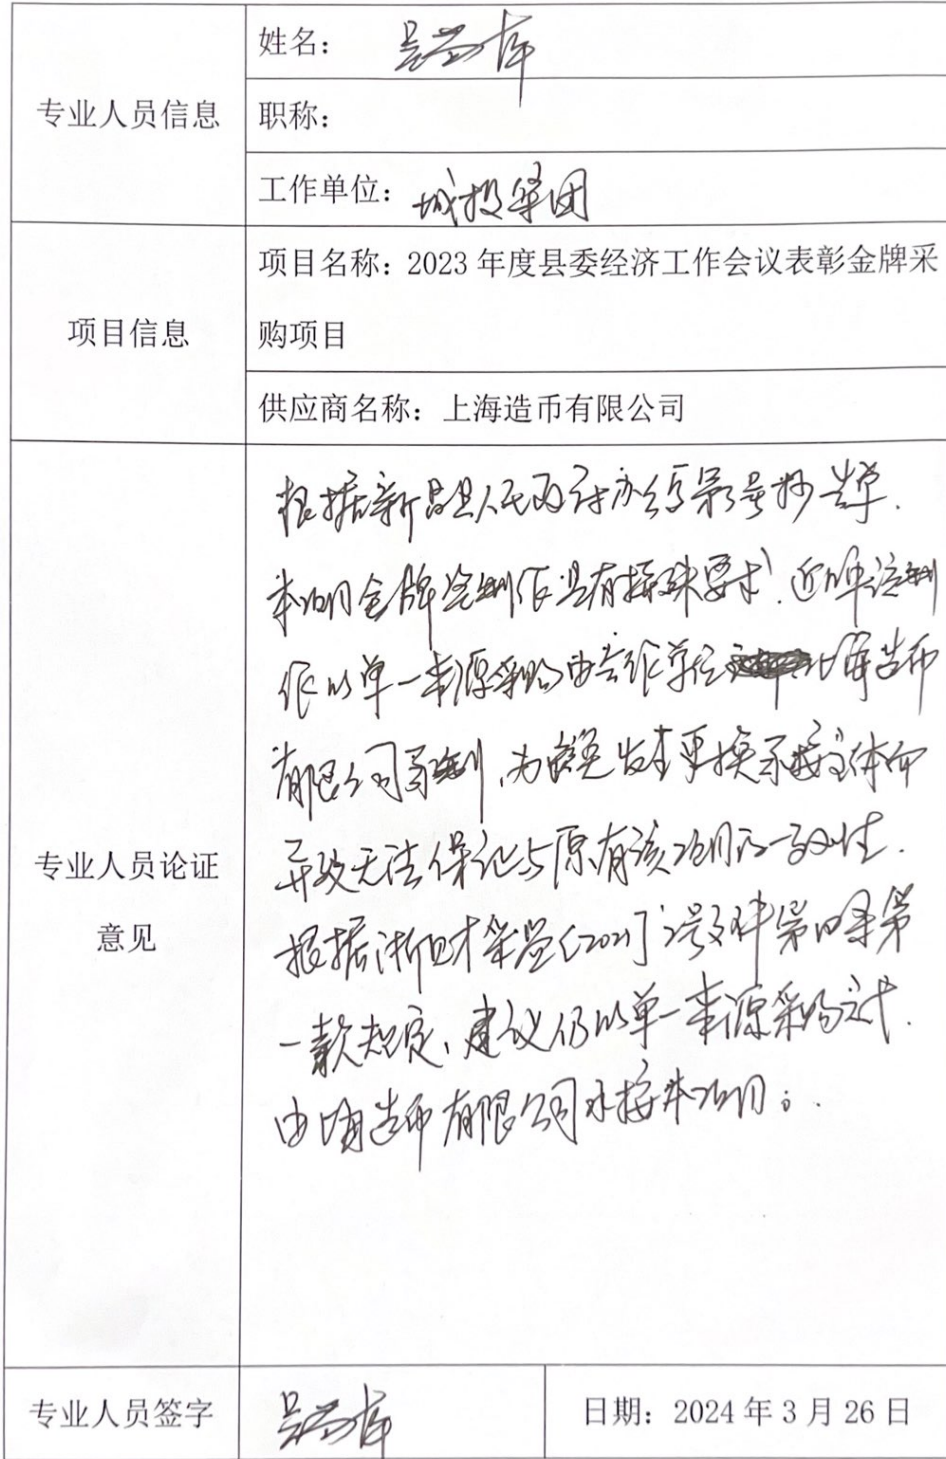 专业人员信息
姓名：
职称：
工作单位：城投集团
项目信息
项目名称：2023 年度县委经济工作会议表彰金牌采
购项目
供应商名称：上海造币有限公司
专业人员论证
意见
根据新昌县人民政府办公室 号抄告单.
本项目金牌 制作具有特殊要求.近几年该制
作以单一来源采购由合作单位 上海造币
有限公司承制,为避免发生更换承接主体而
导致无法保证与原有该项目的一致性.
根据浙财采监(2021) 2号文件第四条第
一款规定,建议仍以单一来源采购方式.
由上海造币有限公司承接本项目;.
专业人员签字
日期：2024 年 3 月 26 日